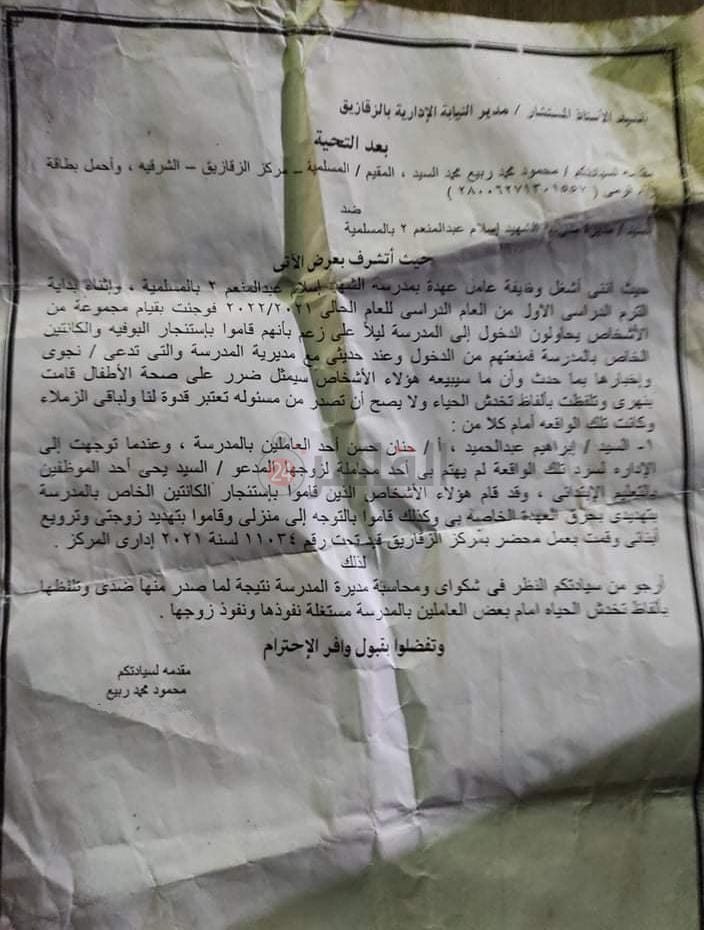 السيد الأستاذ المستشار / مدير النيابة الإدارية بالزقازيق
بعد التحية
مقدمه لسيادتكم / محمود محمد ربيع محمد السيد ، المقيم / المسلمية – مركز الزقازيق – الشرقيه ، وأحمل بطاقة
قومى ( ٢٨٠٠٦٢٧١٣٠١٥٥٧ )
ضد
السيد / مديرة الشهيد إسلام عبدالمنعم ٢ بالمسلمية
حيث أتشرف بعرض الآتى
حيث أننى أشغل وظيفة عامل عهدة بمدرسة الشهيد إسلام عبدالمنعم ٢ بالمسلمية ، وإثناء بداية
الترم الدراسى الاول من العام الدراسى للعام الحالى ٢٠٢٢/٢٠٢١ فوجئت بقيام مجموعة من
الأشخاص يحاولون الدخول إلى المدرسة ليلاً على زعم بأنهم قاموا بإستئجار البوفيه والكانتين
الخاص بالمدرسة فمنعتهم من الدخول وعند حديثى مع مديرية المدرسة والتى تدعى / نجوى
وإخبارها بما حدث وأن ما سيبيعه هؤلاء الأشخاص سيمثل ضرر على صحة الأطفال قامت
بنهرى وتلفظت بألفاظ تخدش الحياء ولا يصح أن تصدر من مسئوله تعتبر قدوة لنا ولباقى الزملاء
وكانت تلك الواقعه أمام كلا من :
١- السيد / إبراهيم عبدالحميد ، أ / حنان حسن أحد العاملين بالمدرسة ، وعندما توجهت إلى
الإداره لسرد تلك الواقعة لم يهتم بى أحد مجاملة لزوجها المدعو / السيد يحى أحد الموظفين
بالتعليم الإبتدائى ، وقد قام هؤلاء الأشخاص الذين قاموا بإستئجار الكانتين الخاص بالمدرسة
بتهديدى بحرق العهدة الخاصه بى وكذلك قاموا بالتوجه إلى منزلى وقاموا بتهديد زوجتى وترويع
أبنائى وقمت بعمل محضر بمركز الزقازيق قيد تحت رقم ١١٠٣٤ لسنة ٢٠٢١ إدارى المركز .
لذلك
أرجو من سيادتكم النظر فى شكواى ومحاسبة مديرة المدرسة نتيجة لما صدر منها ضدى وتلفظها
بألفاظ تخدش الحياه امام بعض العاملين بالمدرسة مستغلة نفوذها ونفوذ زوجها .
وتفضلوا بقبول وافر الإحترام
مقدمه لسيادتكم
محمود محمد ربيع